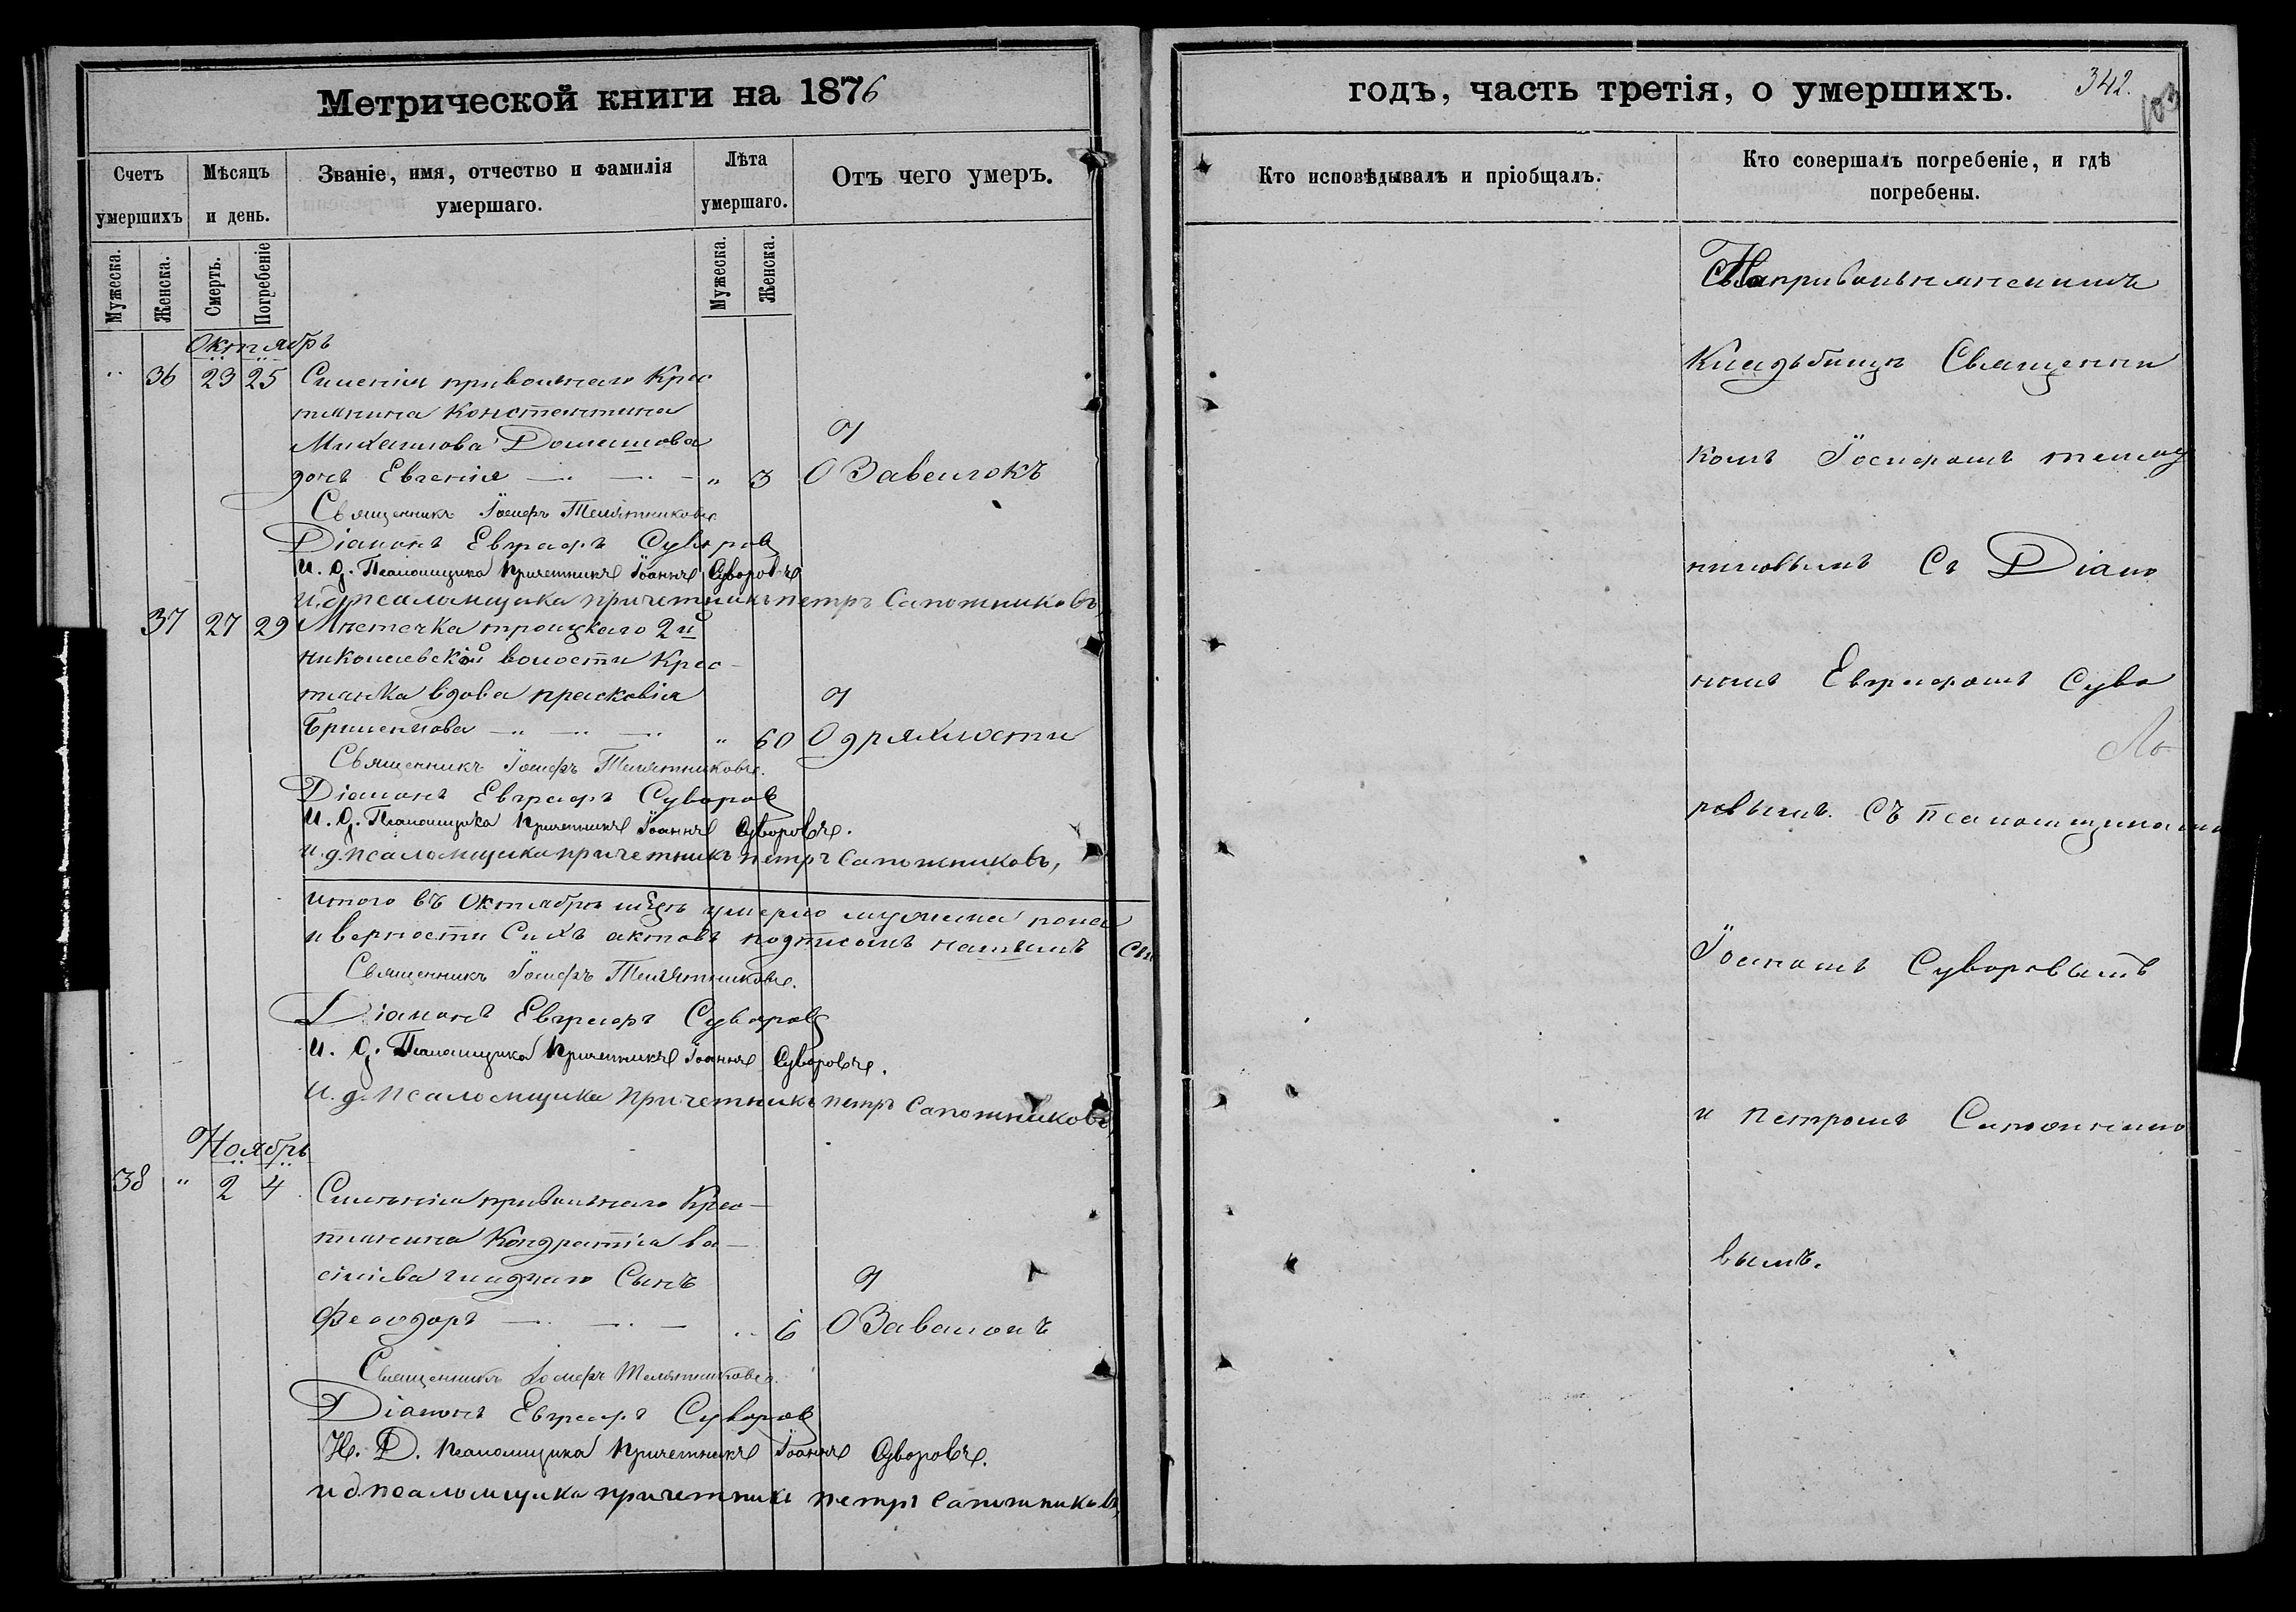 Метрической книги на 1876
Счетъ умершихъ
Мѣсяцъ и день.
Званіе, имя, отчество и фамилія умершаго.
Лѣта умершаго.
Отъ чего умеръ.
Мужеска.
Женска.
Смерть.
Погребеніе
Мужеска.
Женска.
Октябрь
" 36 23 25 Селенія привольнаго Крес
тянина Константина
Михаилова
дочь Евгенія " 3
Священникъ Іосифъ Телятниковъ.
Діаконъ Евграфъ Суворовъ
И. д. Псаломщика Причетникъ Іоаннъ Суворовъ
и.д. псаломщика причетникъ петръ Сапожниковъ,
37 27 29 Мѣстечка троицкаго 2й
николаевской волости Крес-
тянка вдова прасковія
" 60 дряхлости
Священникъ Іосифъ Телятниковъ.
Діаконъ Евграфъ Суворовъ
И. д. Псаломщика Причетникъ Іоаннъ Суворовъ.
и.д. псаломщика причетникъ петръ Сапожниковъ,
итого въ Октябрѣ мцѣ умерло мужеска пола
и верности Сихъ актовъ подписомъ нашимъ
Священникъ Іосифъ Телятниковъ.
Діаконъ Евграфъ Суворовъ
И. д. Псаломщика Причетникъ Іоаннъ Суворовъ.
И. д. псаломщика причетникъ петръ Сапожниковъ,
Ноябрь
38 " 2 4 Селенія привольнаго Крес-
тянина Кондратія ва-
силіева гладкаго Сынъ
Феодоръ " 6
Священникъ Іосифъ Телятниковъ.
Діаконъ Евграфъ Суворовъ
И. Д. Псаломщика Причетникъ Іоаннъ Суворовъ.
и д псаломщика причетникъ петръ Сапожниковъ,
годъ, часть третія, о умершихъ.
342.
103
Кто исповѣдывалъ и пріобщалъ.
Кто совершалъ погребеніе, и гдѣ погребены.
На привольнянскимъ
Кладьбищѣ Священни
комъ Іосифомъ теля
тниковымъ Съ Діако
номъ Евграфомъ Суво
ровымъ. Съ псаломщиками
Іоаномъ Суворовымъ
и петромъ Сапожнико
вымъ.